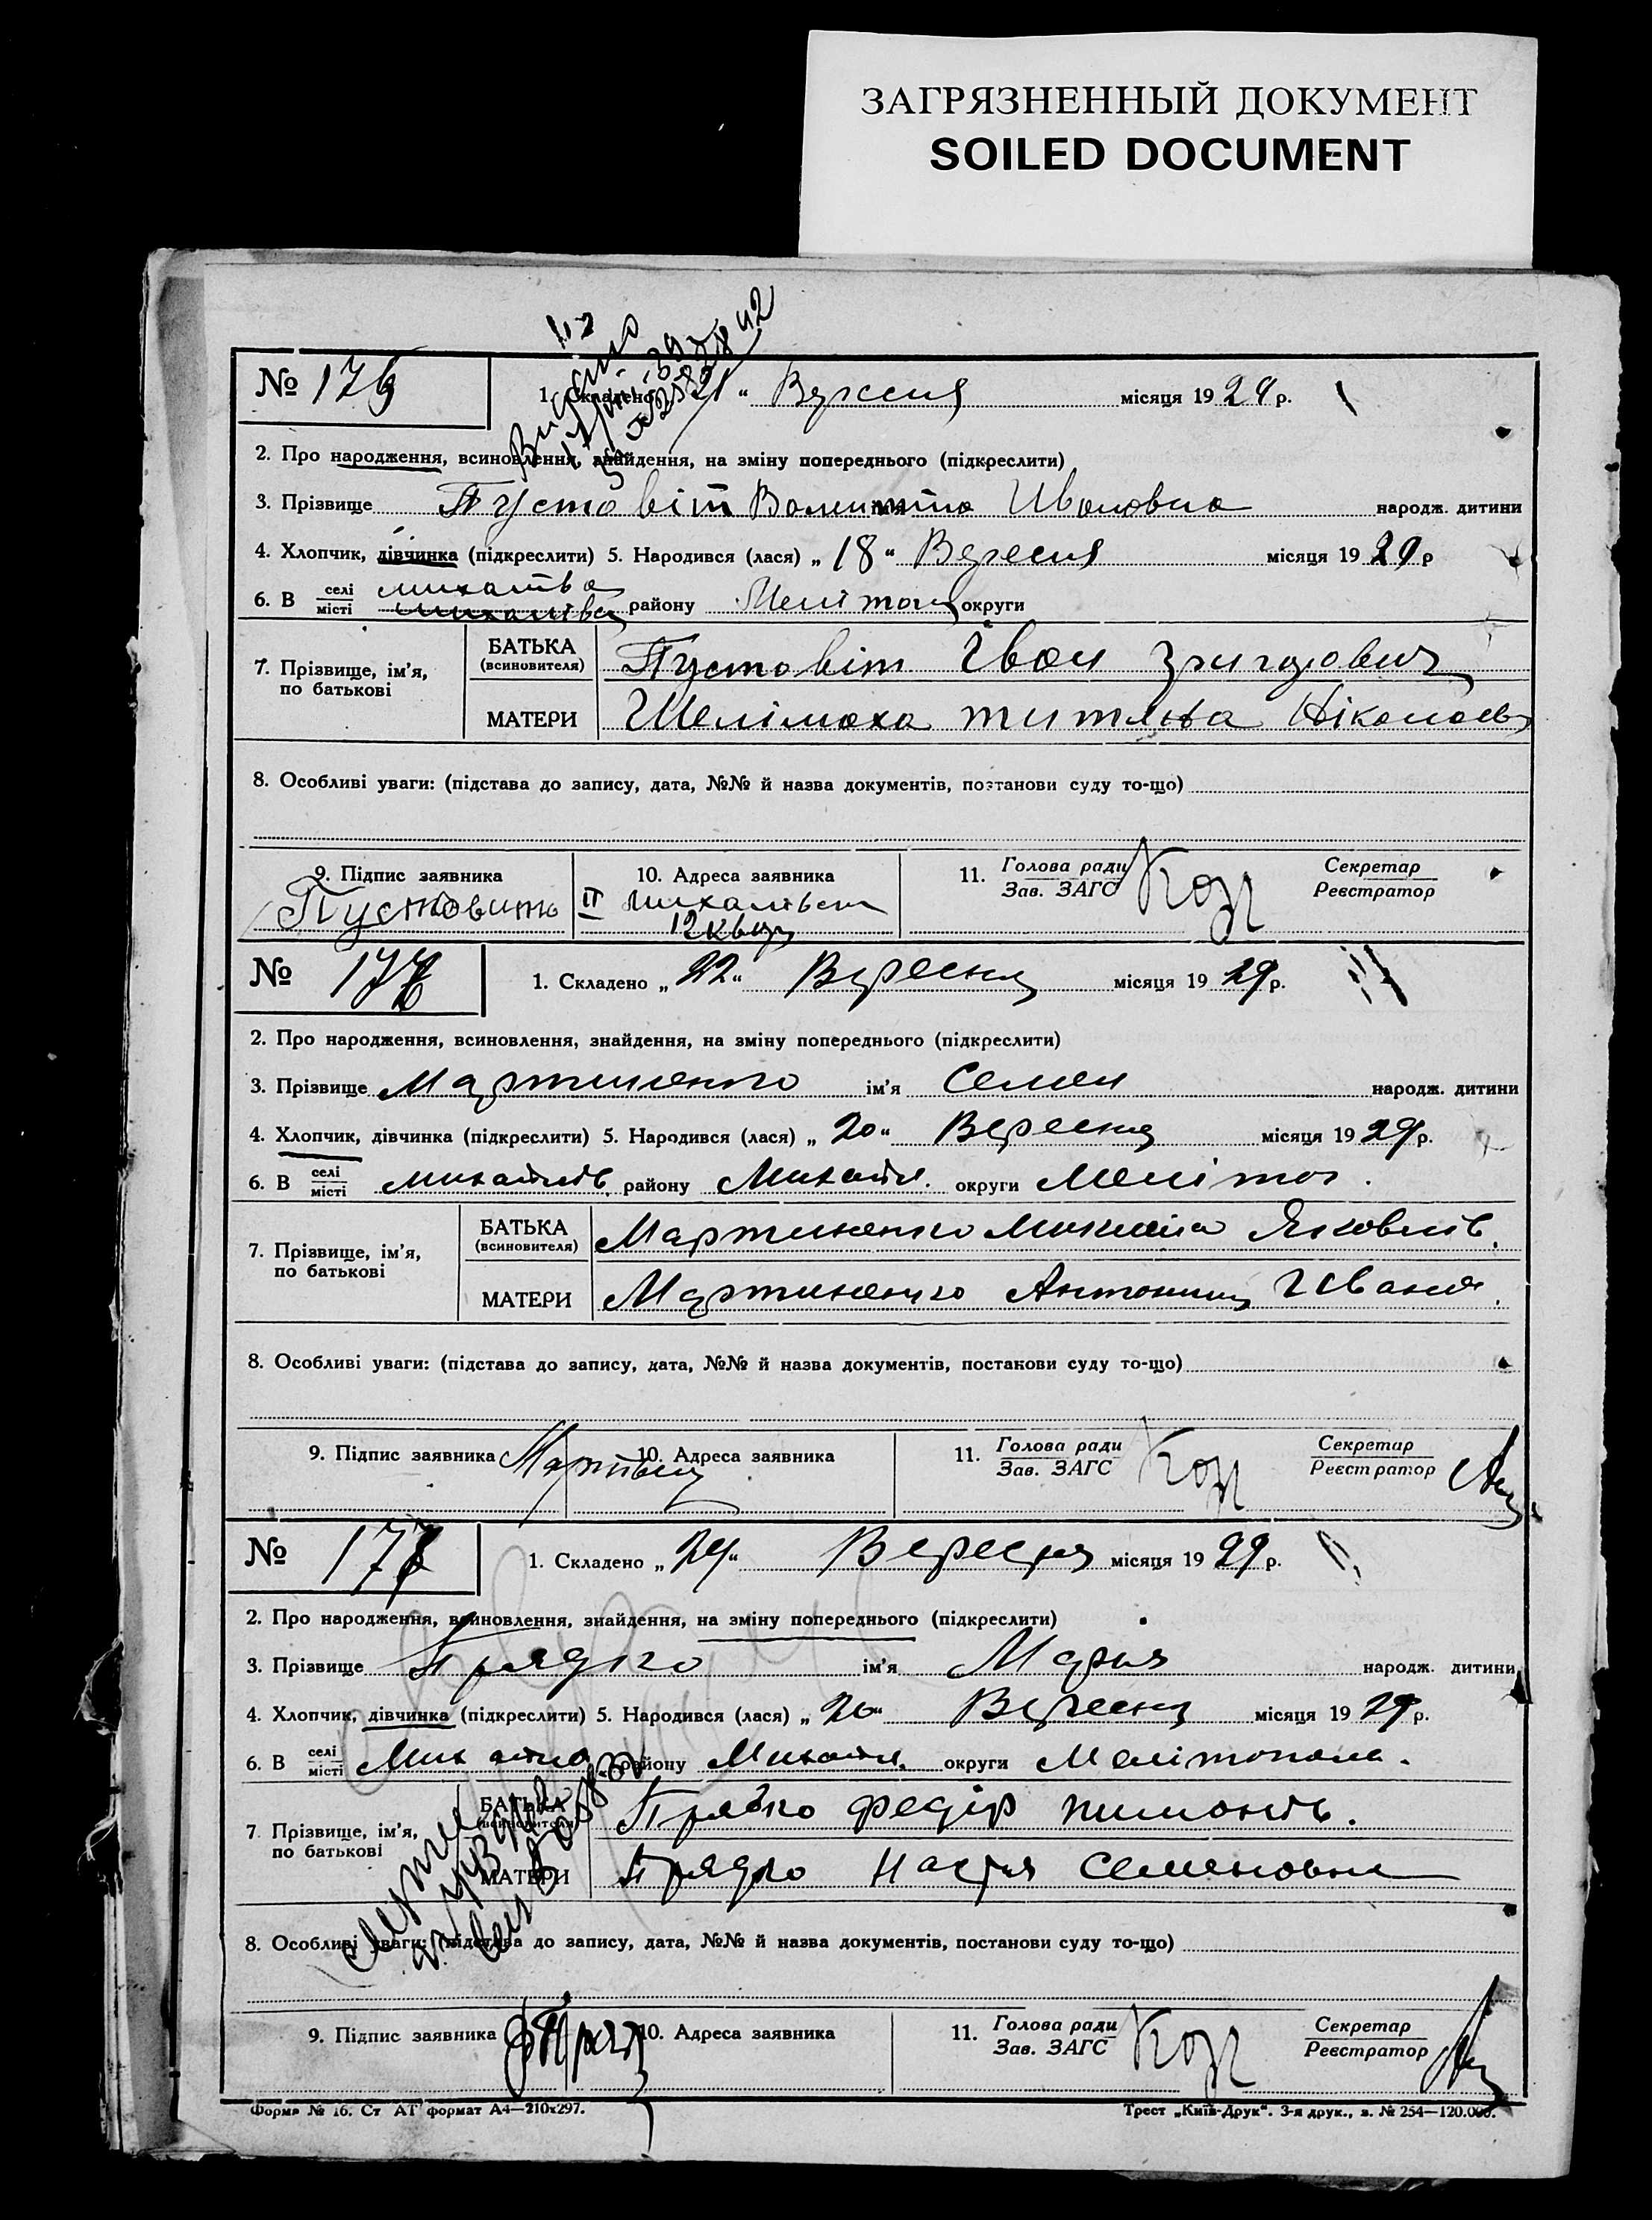 ЗАГРЯЗНЕННЫЙ ДОКУМЕНТ
SOILED DOCUMENT
№ 176
1. Складено „21“ Вересня місяця 1929 р.
2. Про народження, всиновлення, знайдення, на зміну попереднього (підкреслити)
3. Прізвище Пустовіт Валентина Ивановна народж. дитини
4. Хлопчик, дівчинка (підкреслити) 5. Народився (лася) „18“ Вересня місяця 1929 р
6. В селі місті району Мелітоп округи
7. Прізвище, ім'я, по батькові
БАТЬКА (всиновителя) Пустовіт Іван Григорович
МАТЕРИ Шелімаха Титяна Ніколаев
8. Особливі уваги: (підстава до запису, дата, №№ й назва документів, постанови суду то-що)
9. Підпис заявника 10. Адреса заявника 11. Голова ради Зав. ЗАГС Секретар Реєстратор
Пустовить II 12 Коз
№ 177
1. Складено „22“ Вересня місяця 1929 р.
2. Про народження, всиновлення, знайдення, на зміну попереднього (підкреслити)
3. Прізвище Мартиненко ім'я Семен народж. дитини
4. Хлопчик, дівчинка (підкреслити) 5. Народився (лася) „20“ Вересня місяця 1929 р.
6. В селі місті району округи Меліто .
7. Прізвище, ім'я, по батькові
БАТЬКА (всиновителя) Мартиненко Микита Яковлів.
МАТЕРИ Мартиненко Антонина Иванов.
8. Особливі уваги: (підстава до запису, дата, №№ й назва документів, постанови суду то-що)
9. Підпис заявника 10. Адреса заявника 11. Голова ради Зав. ЗАГС Коз Секретар Реєстратор
№ 178
1. Складено „24“ Вересня місяця 1929 р.
2. Про народження, всиновлення, знайдення, на зміну попереднього (підкреслити)
3. Прізвище Прядко ім'я Мария народж. дитини
4. Хлопчик, дівчинка (підкреслити) 5. Народився (лася) „20“ Вересня місяця 1929 р.
6. В селі місті району округи Мелітопол.
7 Прізвище, ім'я, по батькові
БАТЬКА (всиновителя) Прядко Федір Пимонів.
МАТЕРИ Прядко Настя Семеновна
8. Особливі уваги: (підстава до запису, дата, №№ й назва документів, постанови суду то-що)
9. Підпис заявника 10. Адреса заявника 11. Голова ради Зав. ЗАГС Коз Секретар Реєстратор
Форма № 16. Ст АТ формат А4—210х297.
Трест „Київ-Друк“. 3-я друк., з. № 254—120.000.